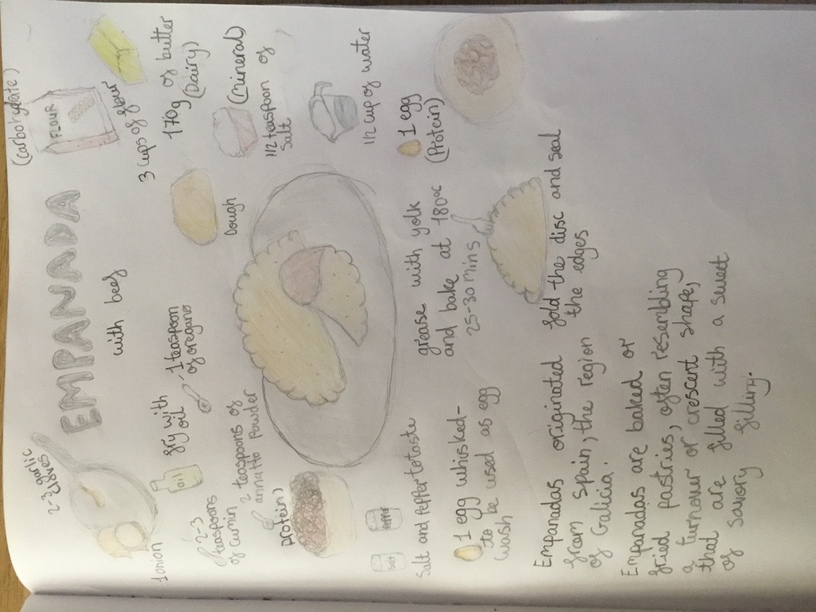 EMPANADA
with beef
2-3 garlic
cloves
1 onion
fry with
oil
oil
1 teaspoon
of oregano
2-3
teaspoons
of cumin
2 teaspoons of
annatto powder
(protein)
Salt
Pepper
Salt and Pepper to taste
1 egg whisked-
to be used as egg
wash
(carbohydrate)
FLOUR
3 cups of flour
170g of butter
(Dairy)
(mineral)
1/2 teaspoon of
salt
1/2 cup of water
1 egg
(Protein)
Dough
grease with yolk
and bake at 180°c
25-30 mins
fold the disc and seal
the edges
Empanadas originated
from Spain, the region
of Galicia.
Empanadas are baked or
fried pastries, often resembling
a turnover or crescent shape,
that are filled with a sweet
of savory filling.